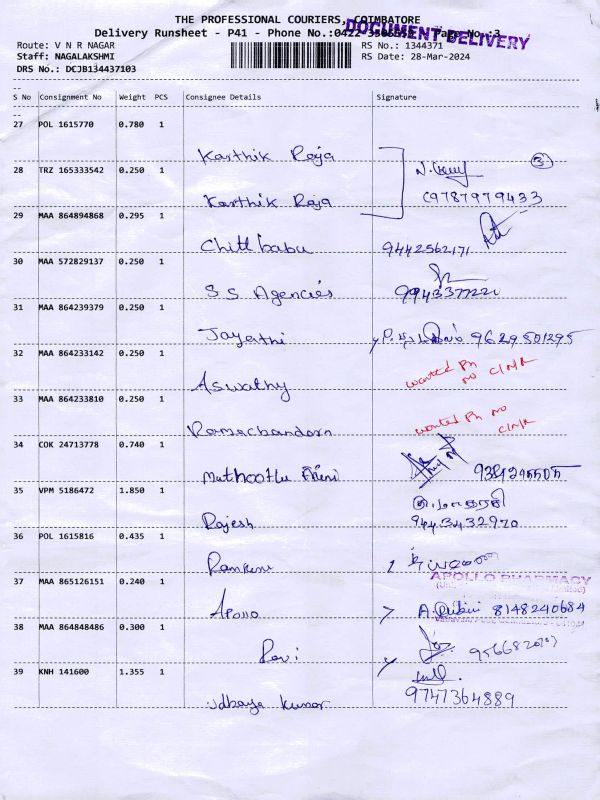 THE PROFESSIONAL COURIERS, COIMBATORE
Delivery Runsheet - P41 - Phone No.:0422 Page No.:3
DOCUMENT DELIVERY
Route: V N R NAGAR RS No.: 1344371
Staff: NAGALAKSHMI RS Date: 28-Mar-2024
DRS No.: DCJB134437103
S No Consignment No Weight PCS Consignee Details Signature
27 POL 1615770 0.780 1
Karthik Raja
3
28 TRZ 165333542 0.250 1
Karthik Raja 9787979433
29 MAA 864894868 0.295 1
Chittibabu 9442562171
30 MAA 572829137 0.250 1
S S Agencies
31 MAA 864239379 0.250 1
Jayanthi 9629501295
32 MAA 864233142 0.250 1
Aswathy wanted Ph no C/N/R
33 MAA 864233810 0.250 1
Ramachandarn wanted Ph no C/N/R
34 COK 24713778 0.740 1
Muthoottu
35 VPM 5186472 1.850 1
Rajesh 9443432970
36 POL 1615816 0.435 1
37 MAA 865126151 0.240 1
APOLLO PHARMACY
Apollo 8148240684
38 MAA 864848486 0.300 1
Ravi
39 KNH 141600 1.355 1
Udhaya Kumar 9747364889